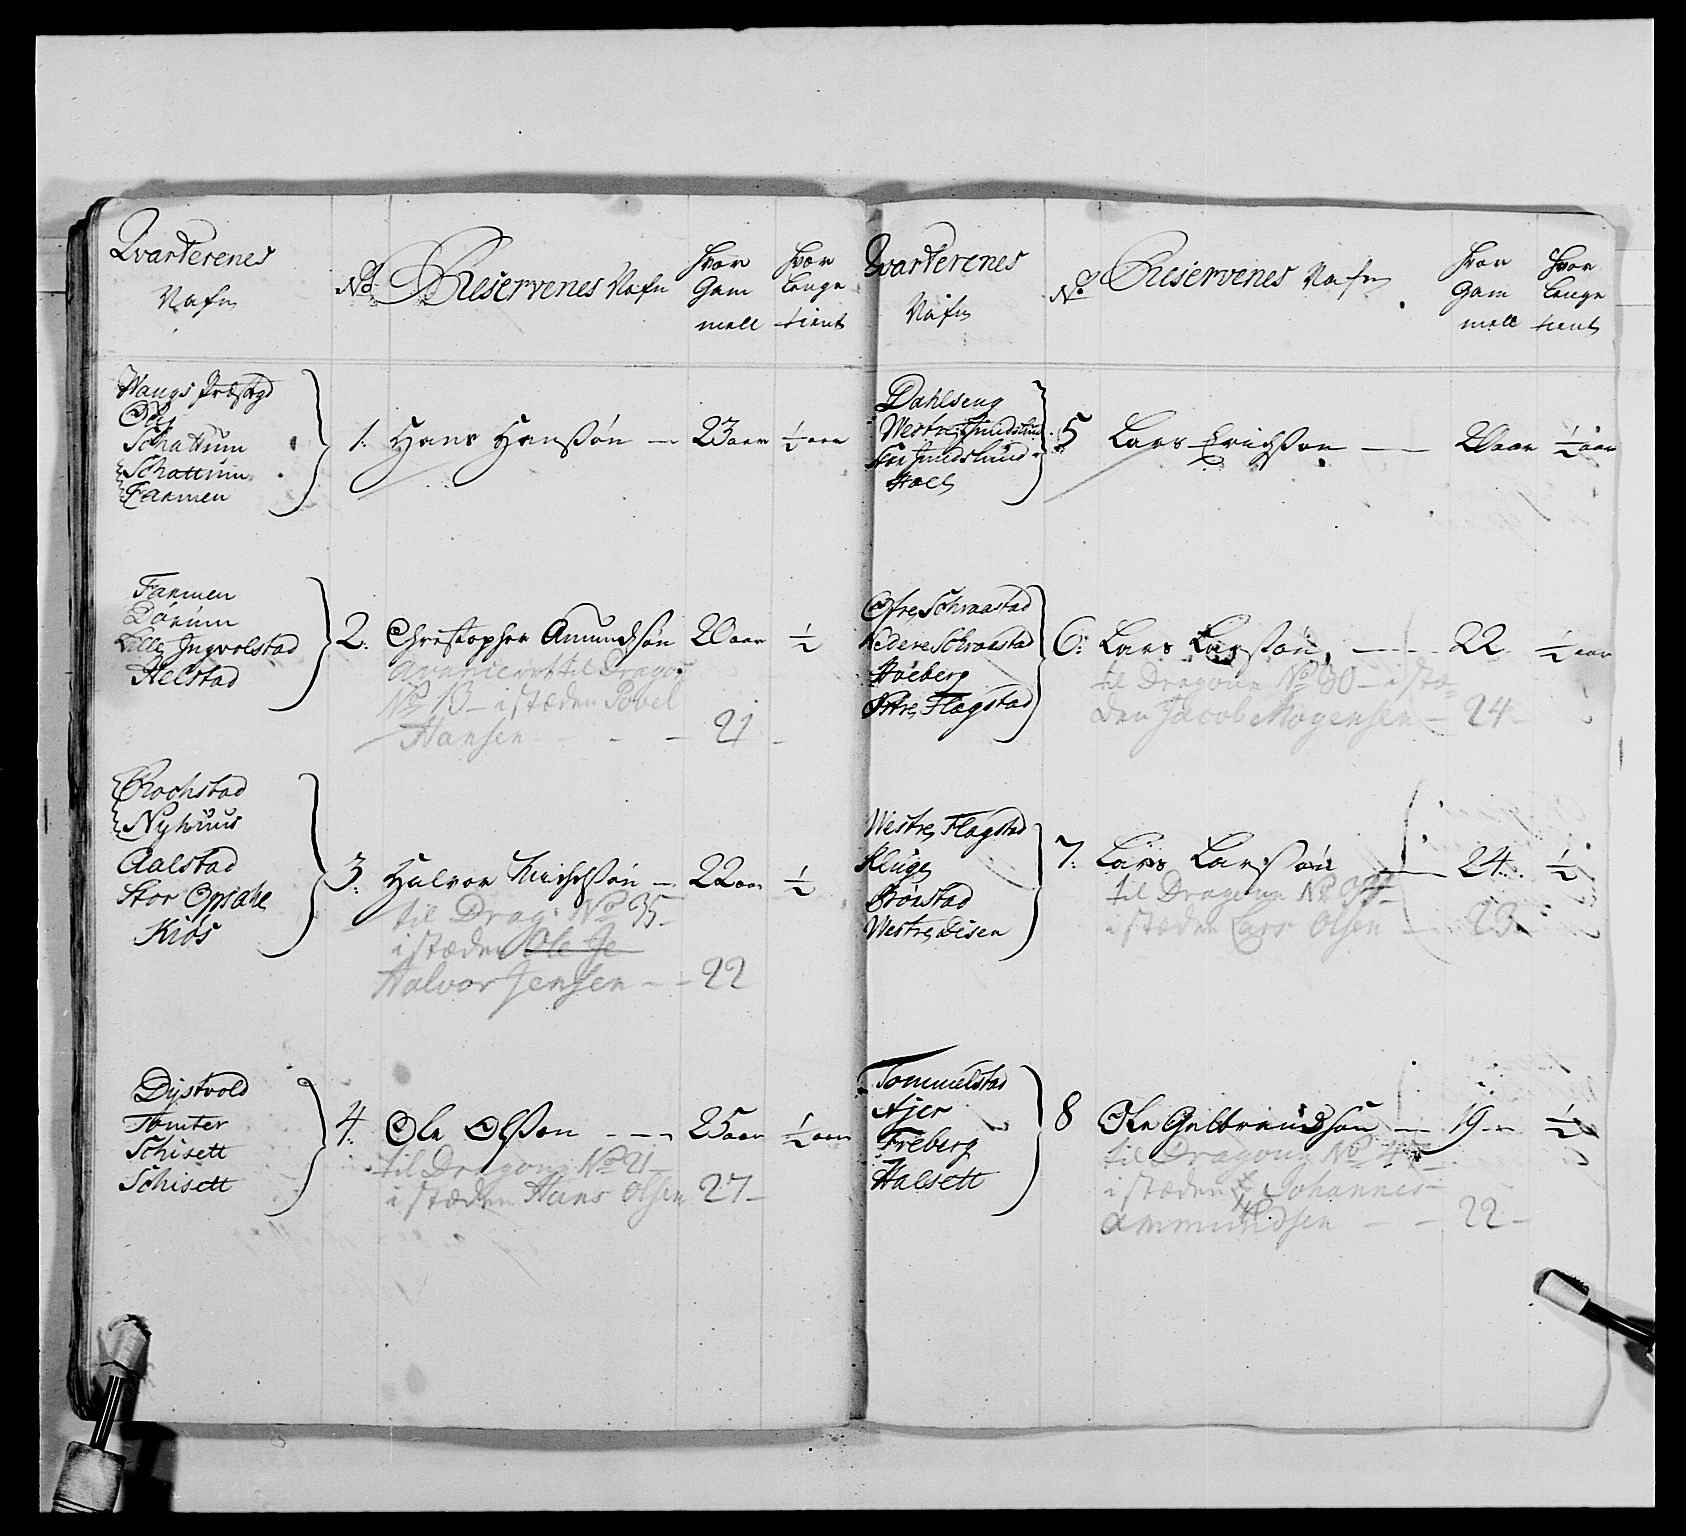 Qvarterenes
Nafn
No
Reservenes Nafn
Hvor
Gam
mell
Hvor
lenge
tient
Wangs Præstgd
Schattum
Schattum
Farmen
1. Hans Hanssøn — 23 aar ½ aar
Farmen
Lille Ingvolstad
Helstad
2. Christopher Amundssøn 20 aar ½
Avanceret til Dragon
No 13 — i stæden Povel
Hansen — — — 21 —
Rochstad
Nyhuus
Aalstad
Stor Opsahl
Kiøs
3. Halvor — 22 aar ½
til Drag: No 35 —
i stæden Ole Je
Halvor Jensen — — 22
Dystvold
Tomter
Schisett
Schisett
4. Ole Olsson — — 25 aar ½ aar
til Dragon No 21 —
i stæden Hans Olsen 27 —
Qvarterenes
Nafn
No
Reservenes Nafn
Hvor
Gam
mell
Hvor
lenge
tient
Dahlseng
Westre Judslund
Stor Judslund
Hoel
5 Lars Erichsson — 20 aar ½ aar
Øfre Schraastad
Nedere Schraastad
Høeberg
Østre Flagstad
6: Lars Larssøn, — 22 ½ aar
til Dragon No 30 — i stæ-
den Jacob Mogensen — 24 —
Westre Flagstad
Kluge
Brønstad
Westre Disen
7. Lars Larssøn — 24 ½
til Dragon No
i stæden Lars Olsen — 23
Tommelstad
Ajer
Freberg
Halsett
8 Ole Gulbrandssøn — 19 — ½
til Dragon No
i stæden Johannes
Ammundsen — — 22 —